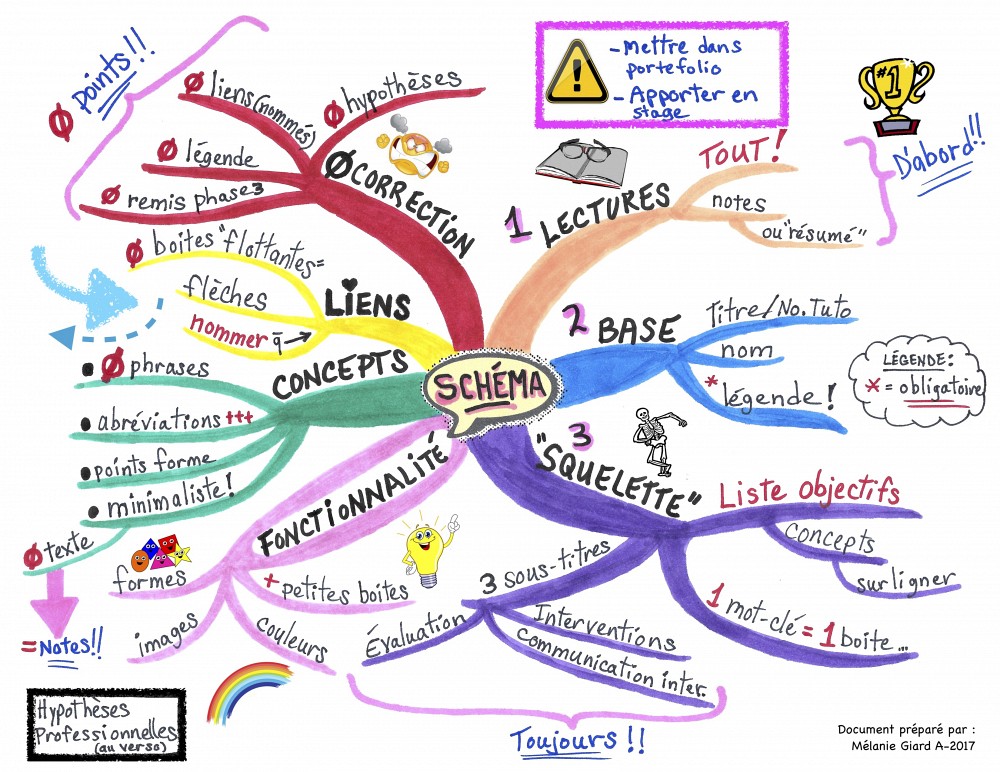 SCHÉMA
- Mettre dans
portefolio
- Apporter en
stage
#1
D'abord!!
1 LECTURES
TOUT!
notes
ou "résumé"
2 BASE
Titre/No.Tuto
nom
* légende!
LÉGENDE:
* = obligatoire
3
"SQUELETTE"
Liste objectifs
Concepts
surligner
1 mot-clé = 1 boite...
3 sous-titres
Évaluation
Interventions
Communication inter.
Toujours!!
FONCTIONNALITÉ
formes
images
couleurs
+ petites boites
CONCEPTS
• Ø phrases
• abréviations +++
• points forme
• minimaliste!
Ø texte
= Notes!!
LIENS
Ø boites "flottantes"
flèches
nommer q̄ →
Ø CORRECTION
Ø points!!
Ø liens (nommés)
Ø hypothèses
Ø légende
Ø remis phase 3
Hypothèses
Professionnelles
(au verso)
Document préparé par :
Mélanie Giard A-2017